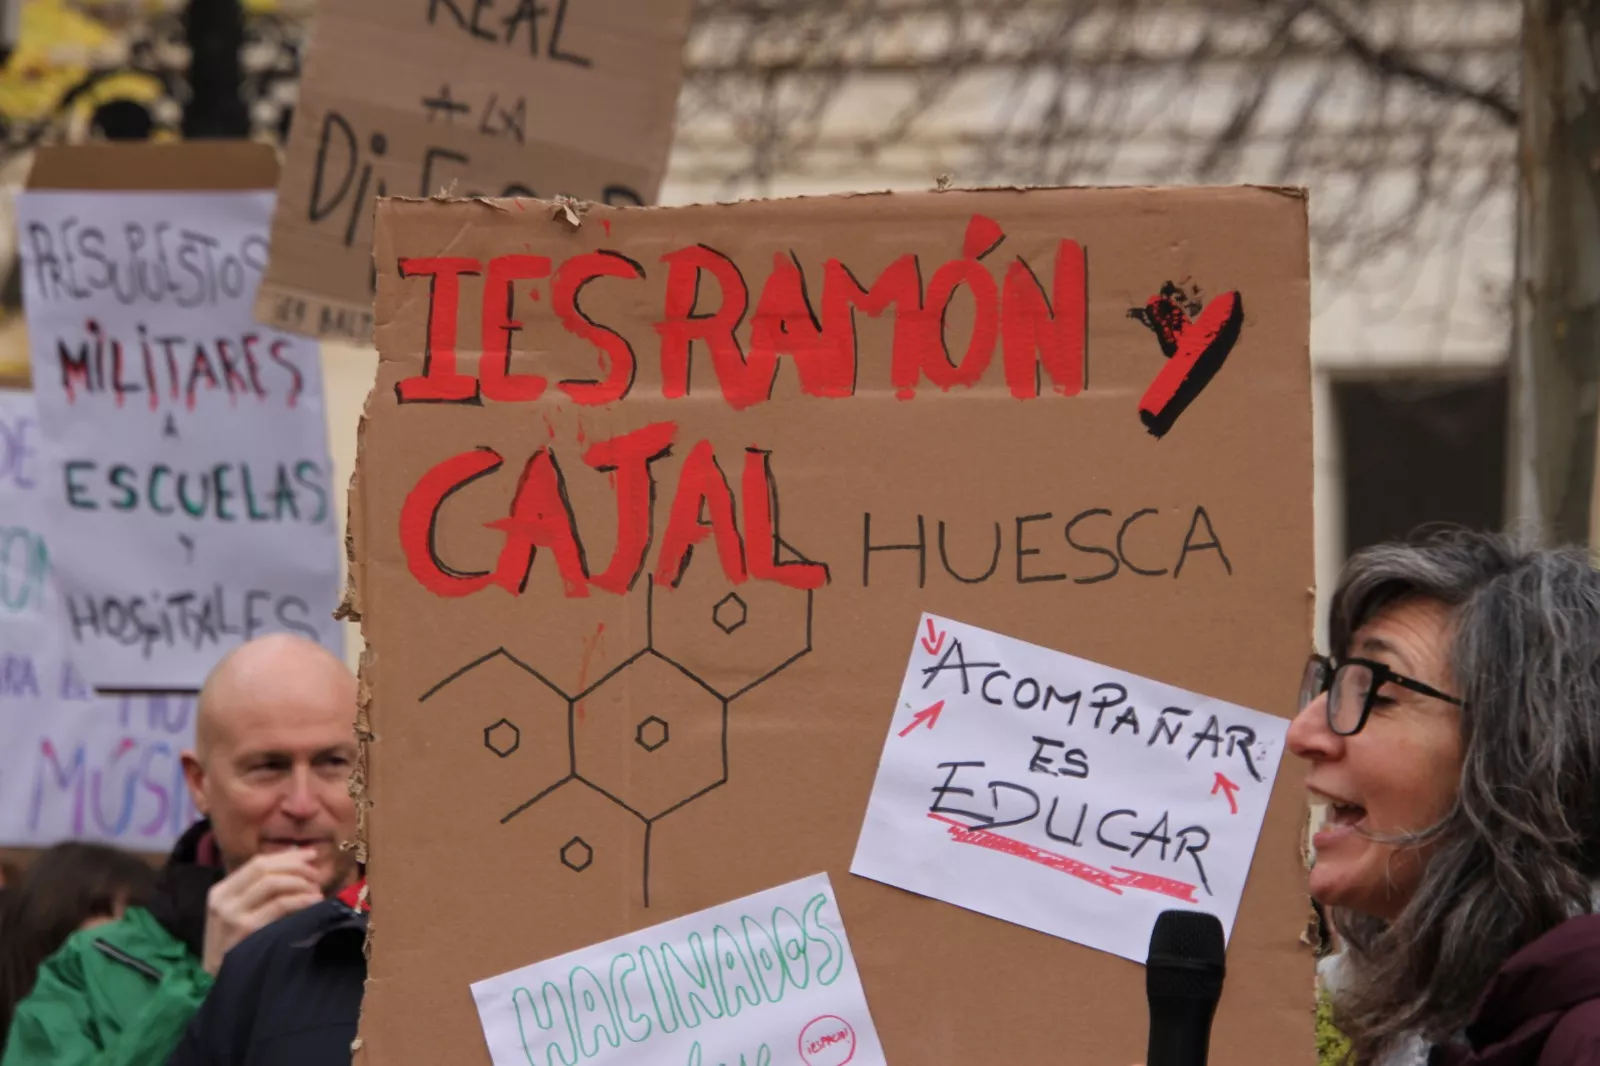 REAL
A LA
PRESUPUESTOS
MILITARES
A
ESCUELAS
Y
HOSPITALES
IES RAMÓN Y
CAJAL HUESCA
ACOMPAÑAR
ES
EDUCAR
HACINADOS
¡ESPACIO!
DE
ARA LA
MÚSI